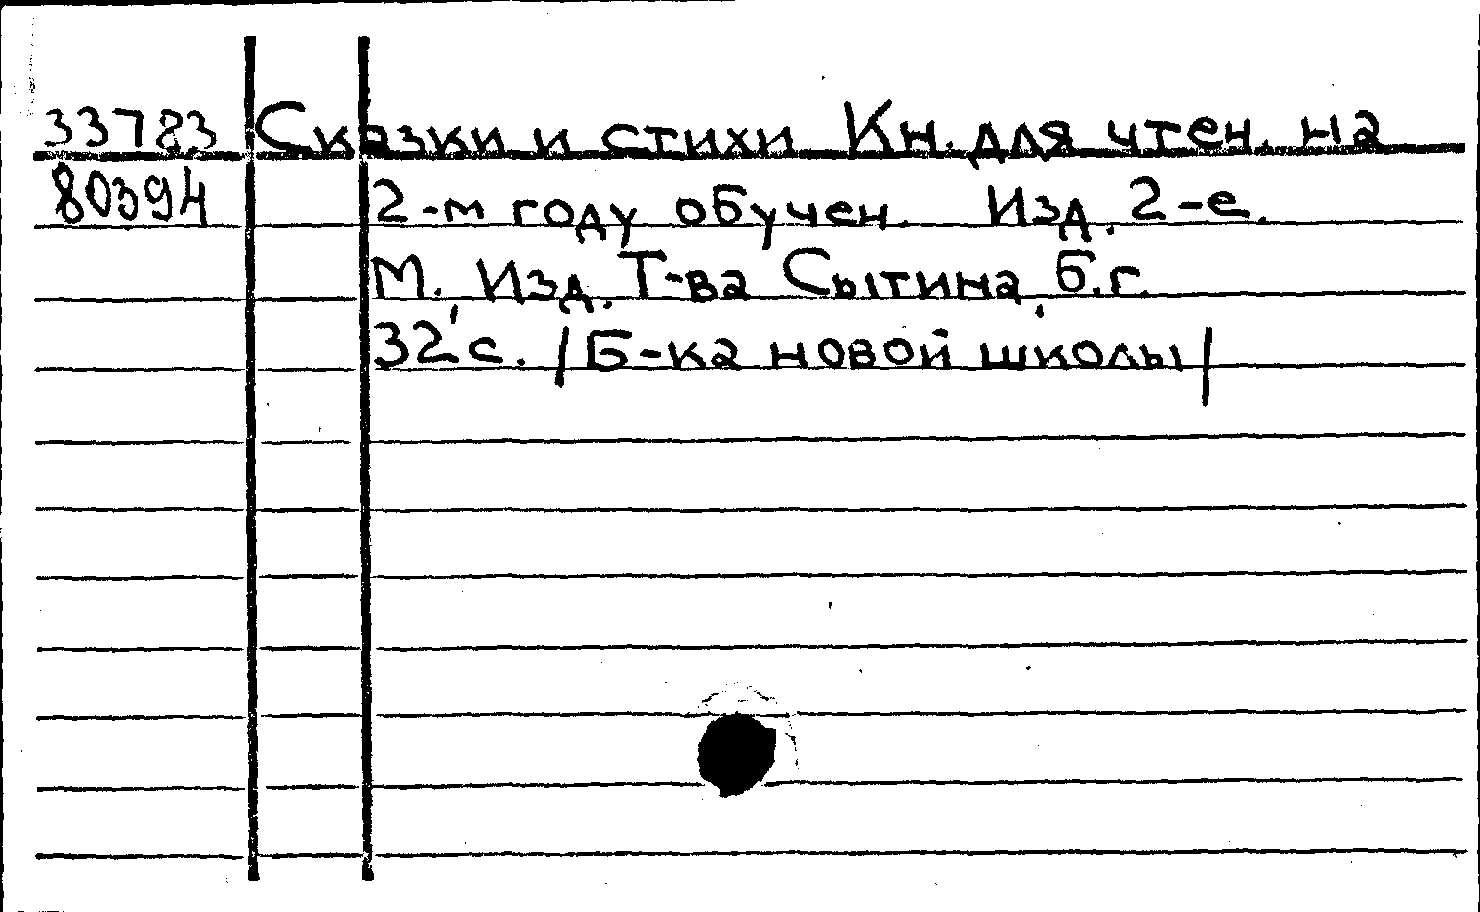 33783 Сказки и стихи Кн. для чтен. на
80394 2-м году обучен. Изд. 2-е.
М., Изд. Т-ва Сытина, б.г.
32 с. /Б-ка новой школы/